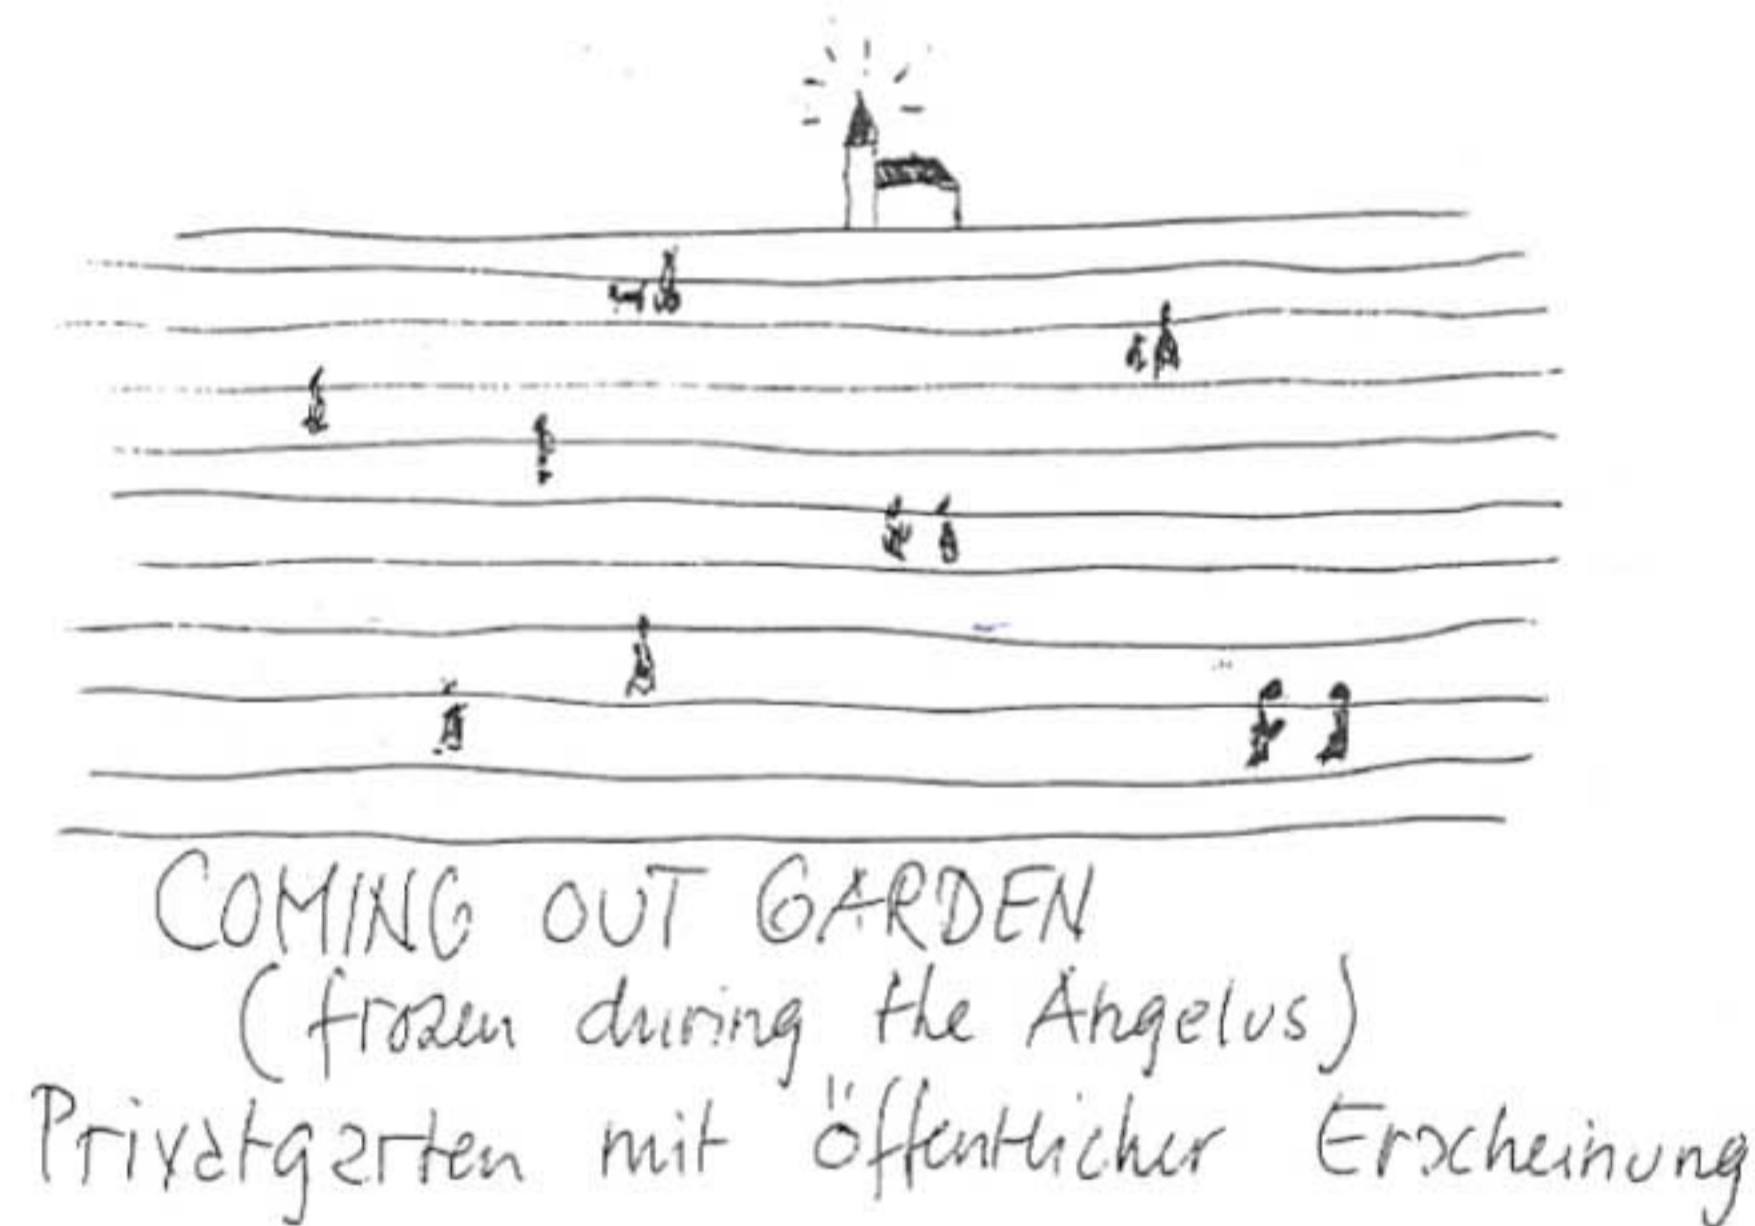 COMING OUT GARDEN
(frozen during the Angelus)
Privatgarten mit öffentlicher Erscheinung